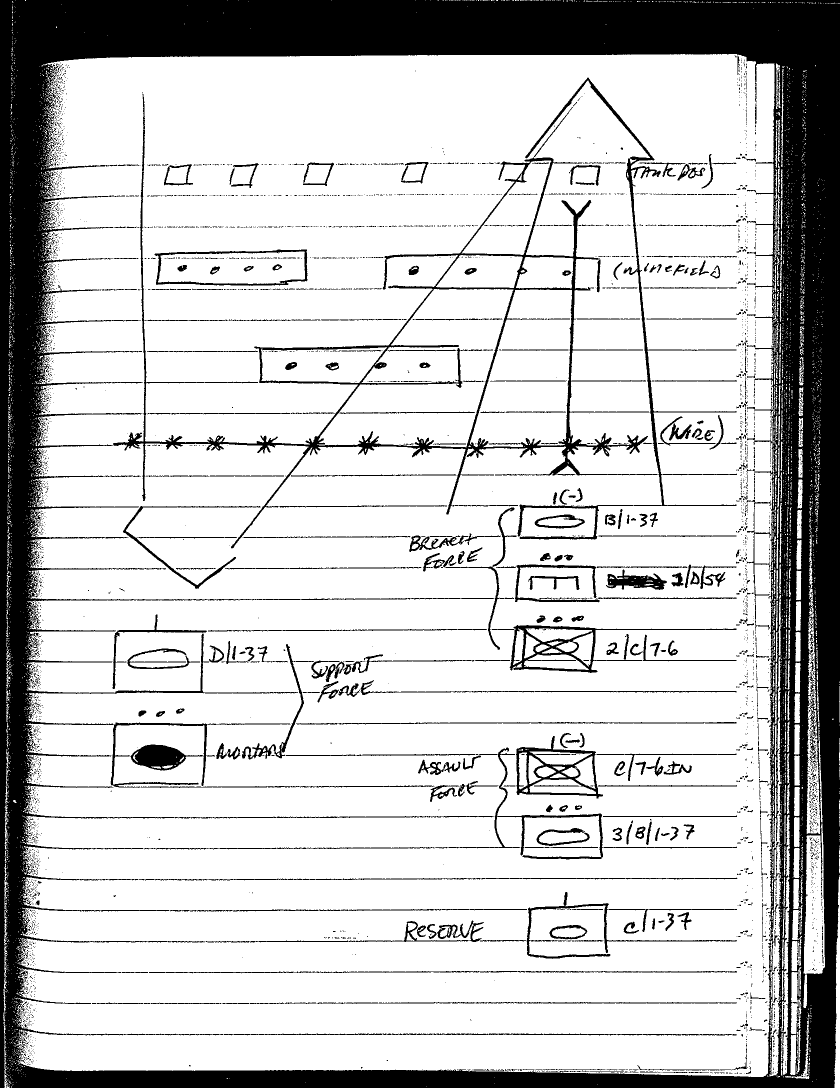 (TANK POS)
(MINEFIELD
(WIRE)
1(-)
B/1-37
BREACH
FORCE
1/D/54
2/C/7-6
D/1-37
SUPPORT
FORCE
MORTARS
1(-)
ASSAULT
FORCE
C/7-6 IN
3/B/1-37
RESERVE
C/1-37